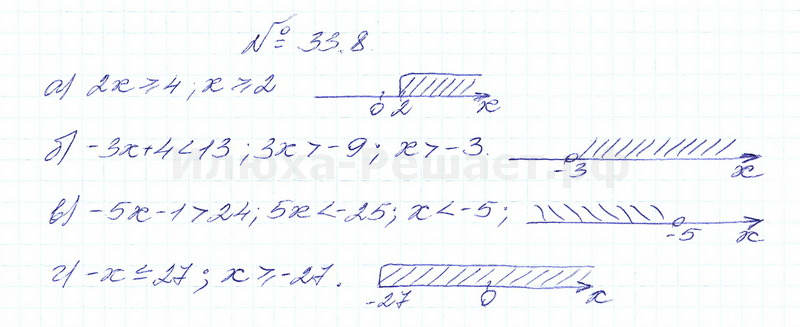 № 33.8.
а) 2x ≥ 4; x ≥ 2 0 2 x
б) -3x+4<13; 3x>-9; x>-3. -3 x
Илюха-Решает.рф
в) -5x-1>24; 5x<-25; x<-5; -5 x
г) -x ≤ 27; x ≥ -27. -27 0 x